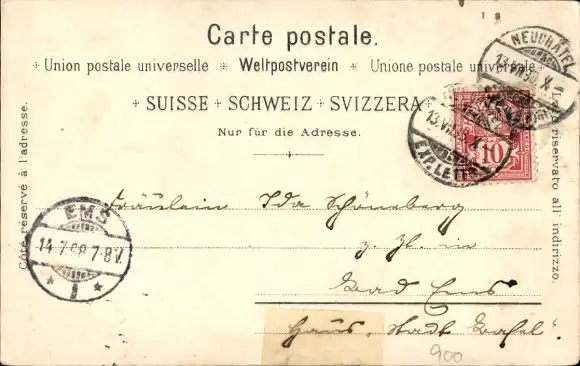 Carte postale.
+ Union postale universelle * Weltpostverein * Unione postale universale +
+ SUISSE + SCHWEIZ + SVIZZERA +
Nur für die Adresse.
Côté réservé à l'adresse.
Lato riservato all' indirizzo.
NEUCHATEL
13.VII.98.X
13.VII.98.X
EXP. LETTR.
10
EMS
14 7.98 7-8V.
* 1 *
Fräulein Ida Schöneberg
z. Zt. in
Bad Ems
Haus „Stadt Cassel".
900